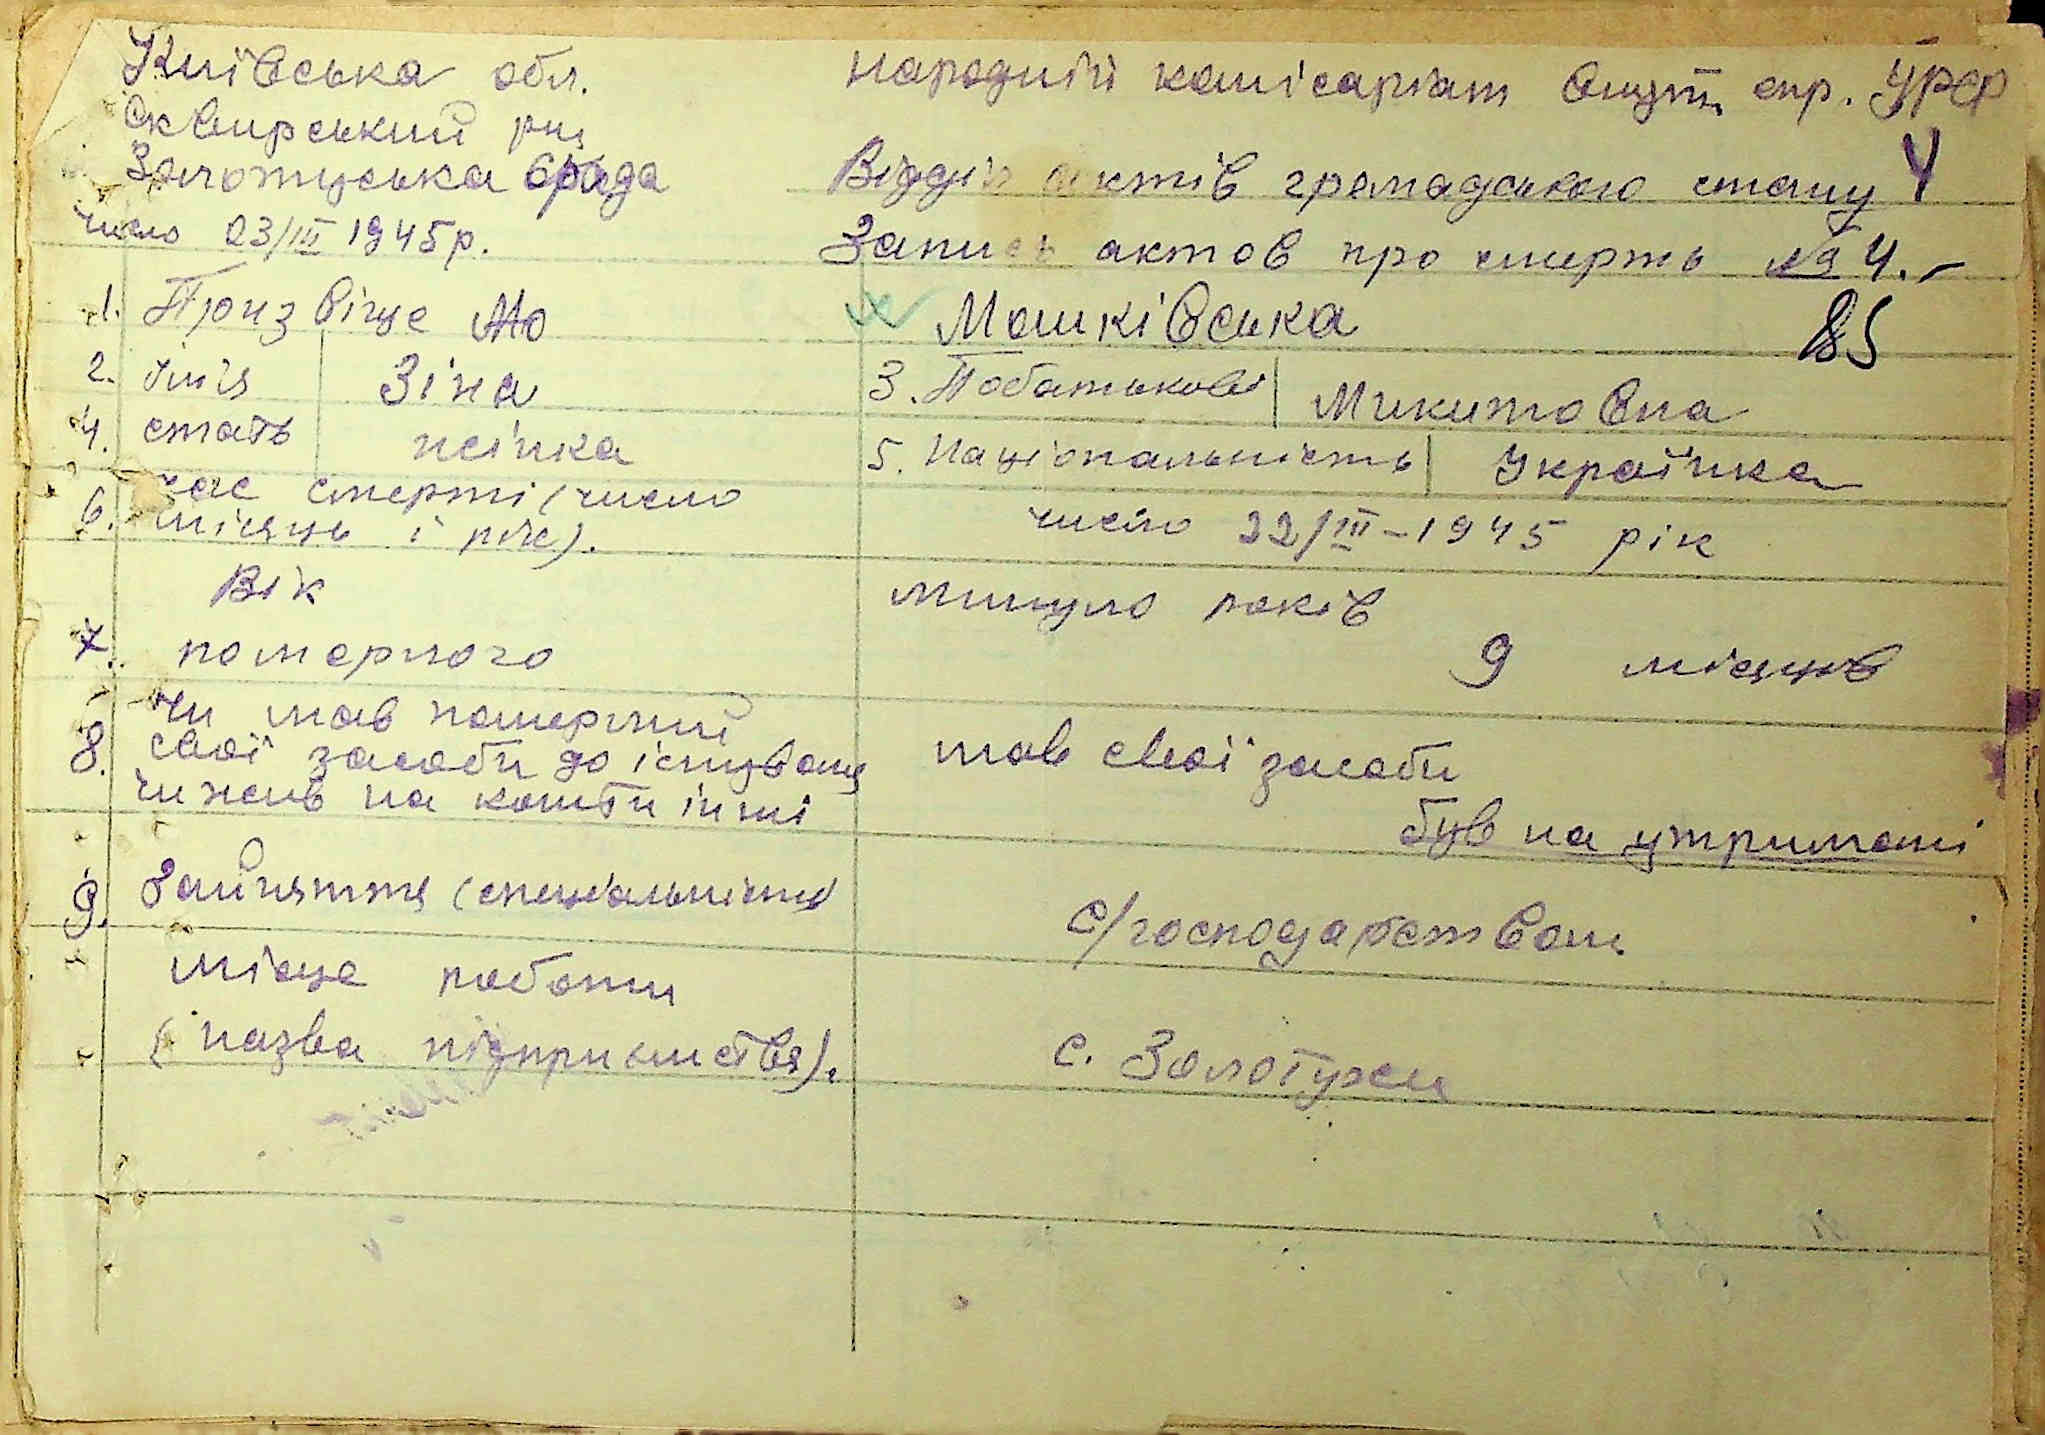 Київська обл.
Сквирський р-н
Золотуська с/рада
число 23/III 1945 р.
Народній комісаріат внутт спр. УРСР
Відділ актів громадського стану 4
Запись актов про смерть № 4.-
1. Прюзвіще Мо Мошківська 85
2. імія Зіна 3. Побатькові Микитовна
4. стать жінка 5. Національність Українка
6. час смерті (число
місяць і рік). число 22/III - 1945 рік
Вік минуло років
7. померлого 9 місяців
8. чи мав померлий
свої засоби до існуваня мав свої засоби
чи жив на кошти інші був на утримані
9. Зайняття (спеціальність) с/господарством
місце работи
(назва підприємствя). с. Золотухи